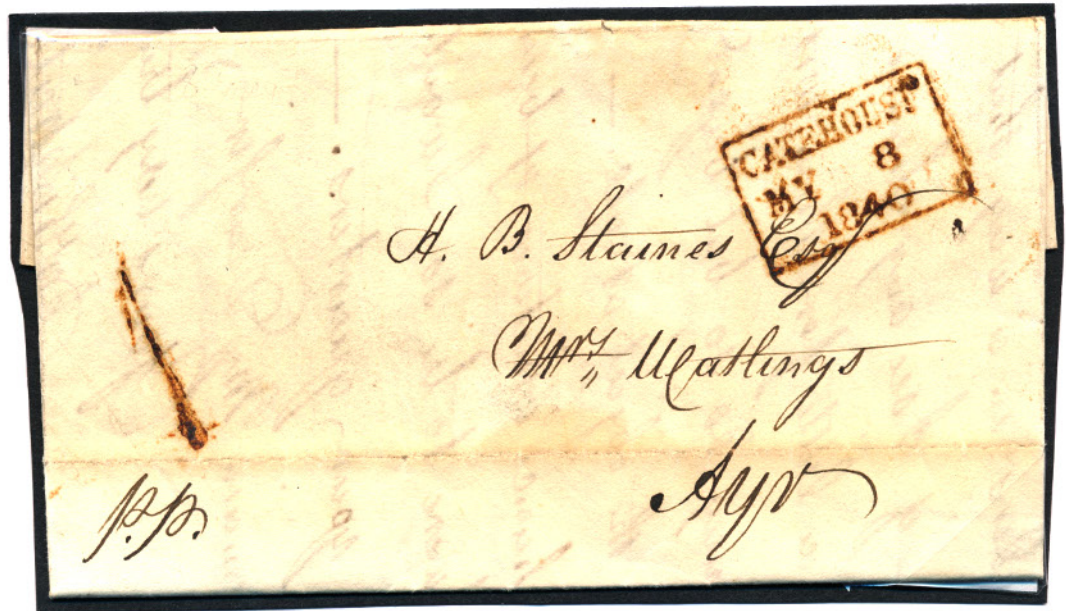 GATEHOUSE
MY 8
1840
H. B. Staines Esq
Mrs
Ayr
p.p.